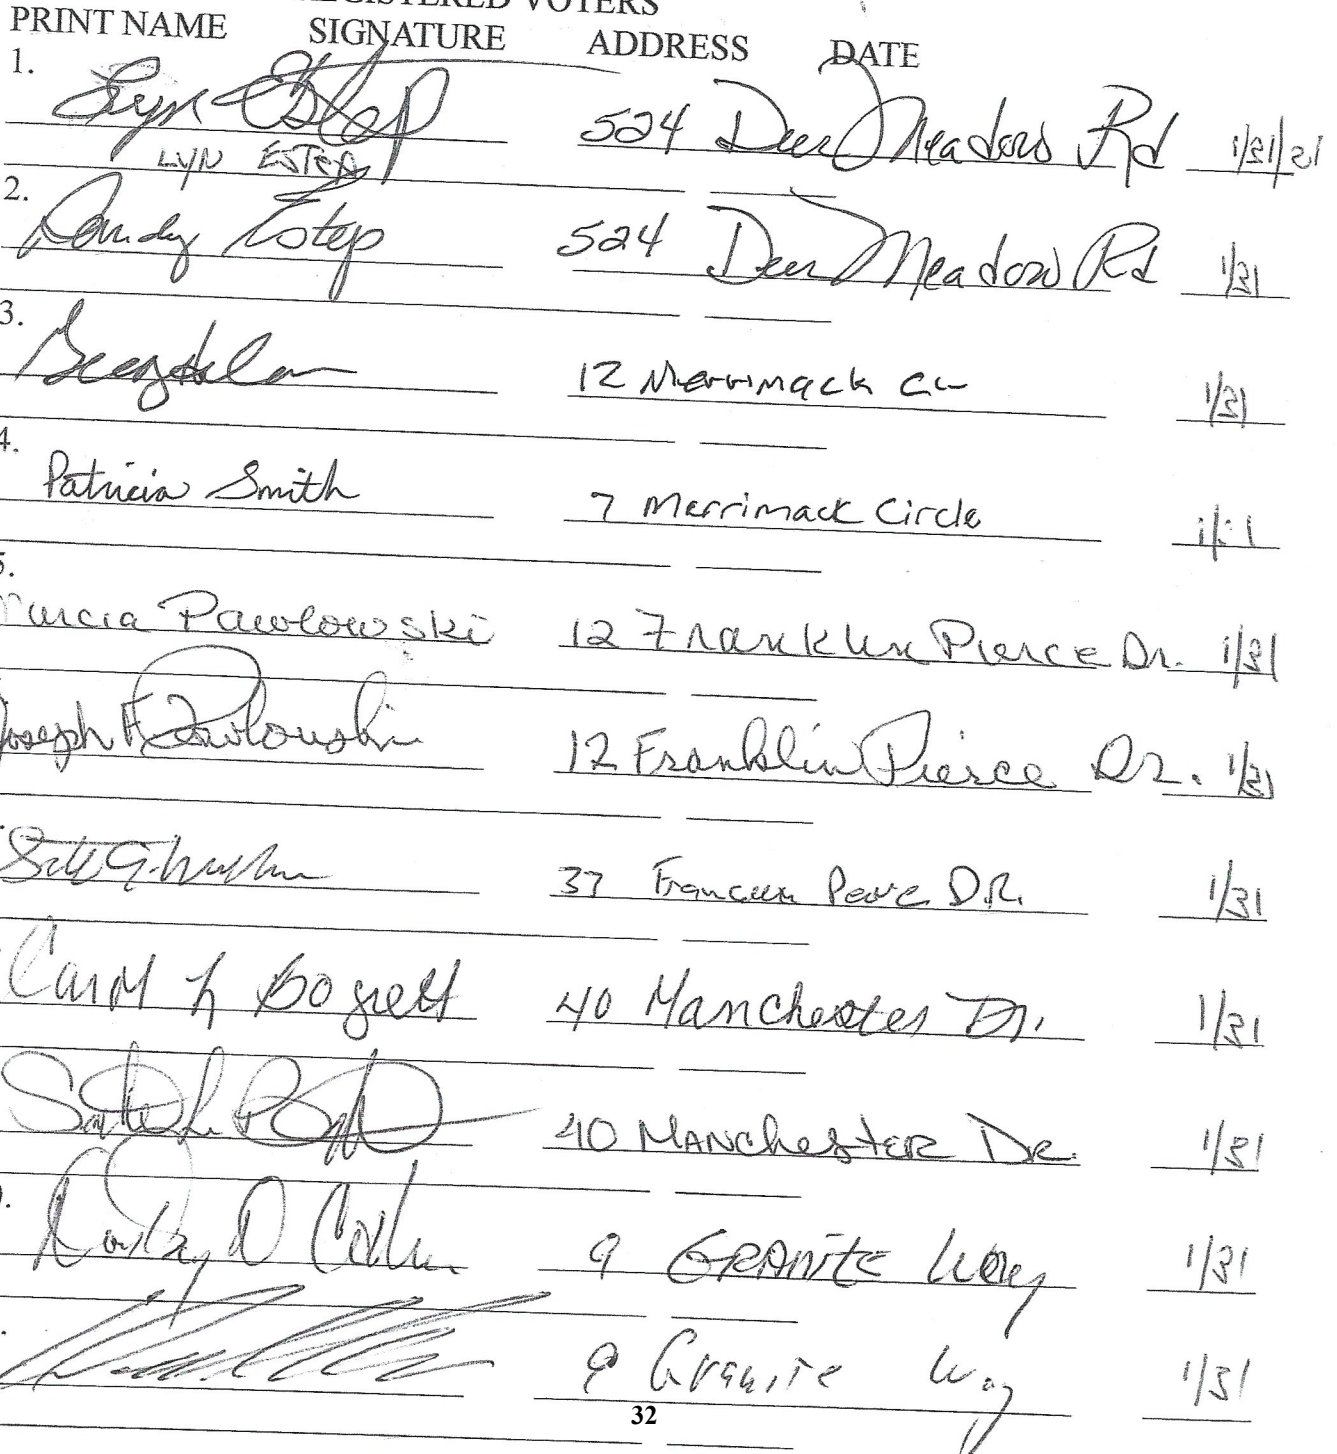 REGISTERED VOTERS
PRINT NAME SIGNATURE ADDRESS DATE
1.
Lyn Estep 524 Deer Meadows Rd 1/31/21
LYN ESTEP
2.
Randy Estep 524 Deer Meadow Rd 1/31
3.
12 Merrimack Cir 1/31
4.
Patricia Smith 7 Merrimack Circle
5.
Marcia Pawlowski 12 Franklin Pierce Dr. 1/31
Joseph F Pawlowski 12 Franklin Pierce Dr. 1/31
37 D.R. 1/31
Carol L 40 Manchester Dr. 1/31
40 MANChesteR DR. 1/31
9 GRANITE Way 1/31
9 Granite Way 1/31
32